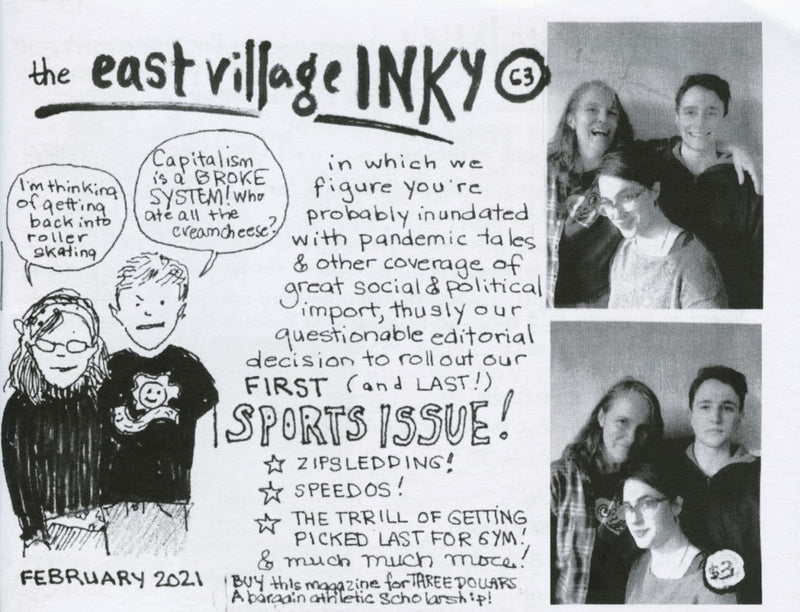 the east village INKY 63
I'm thinking
of getting
back into
roller
skating
Capitalism
is a BROKE
SYSTEM! Who
ate all the
creamcheese?
in which we
figure you're
probably inundated
with pandemic tales
& other coverage of
great social & political
import, thusly our
questionable editorial
decision to roll out our
FIRST (and LAST!)
SPORTS ISSUE!
☆ ZIPSLEDDING!
☆ SPEEDOS!
☆ THE TRRILL OF GETTING
PICKED LAST FOR GYM!
& much much more!
FEBRUARY 2021
BUY this magazine for THREE DOLLARS.
A bargain athletic scholarship!
$3